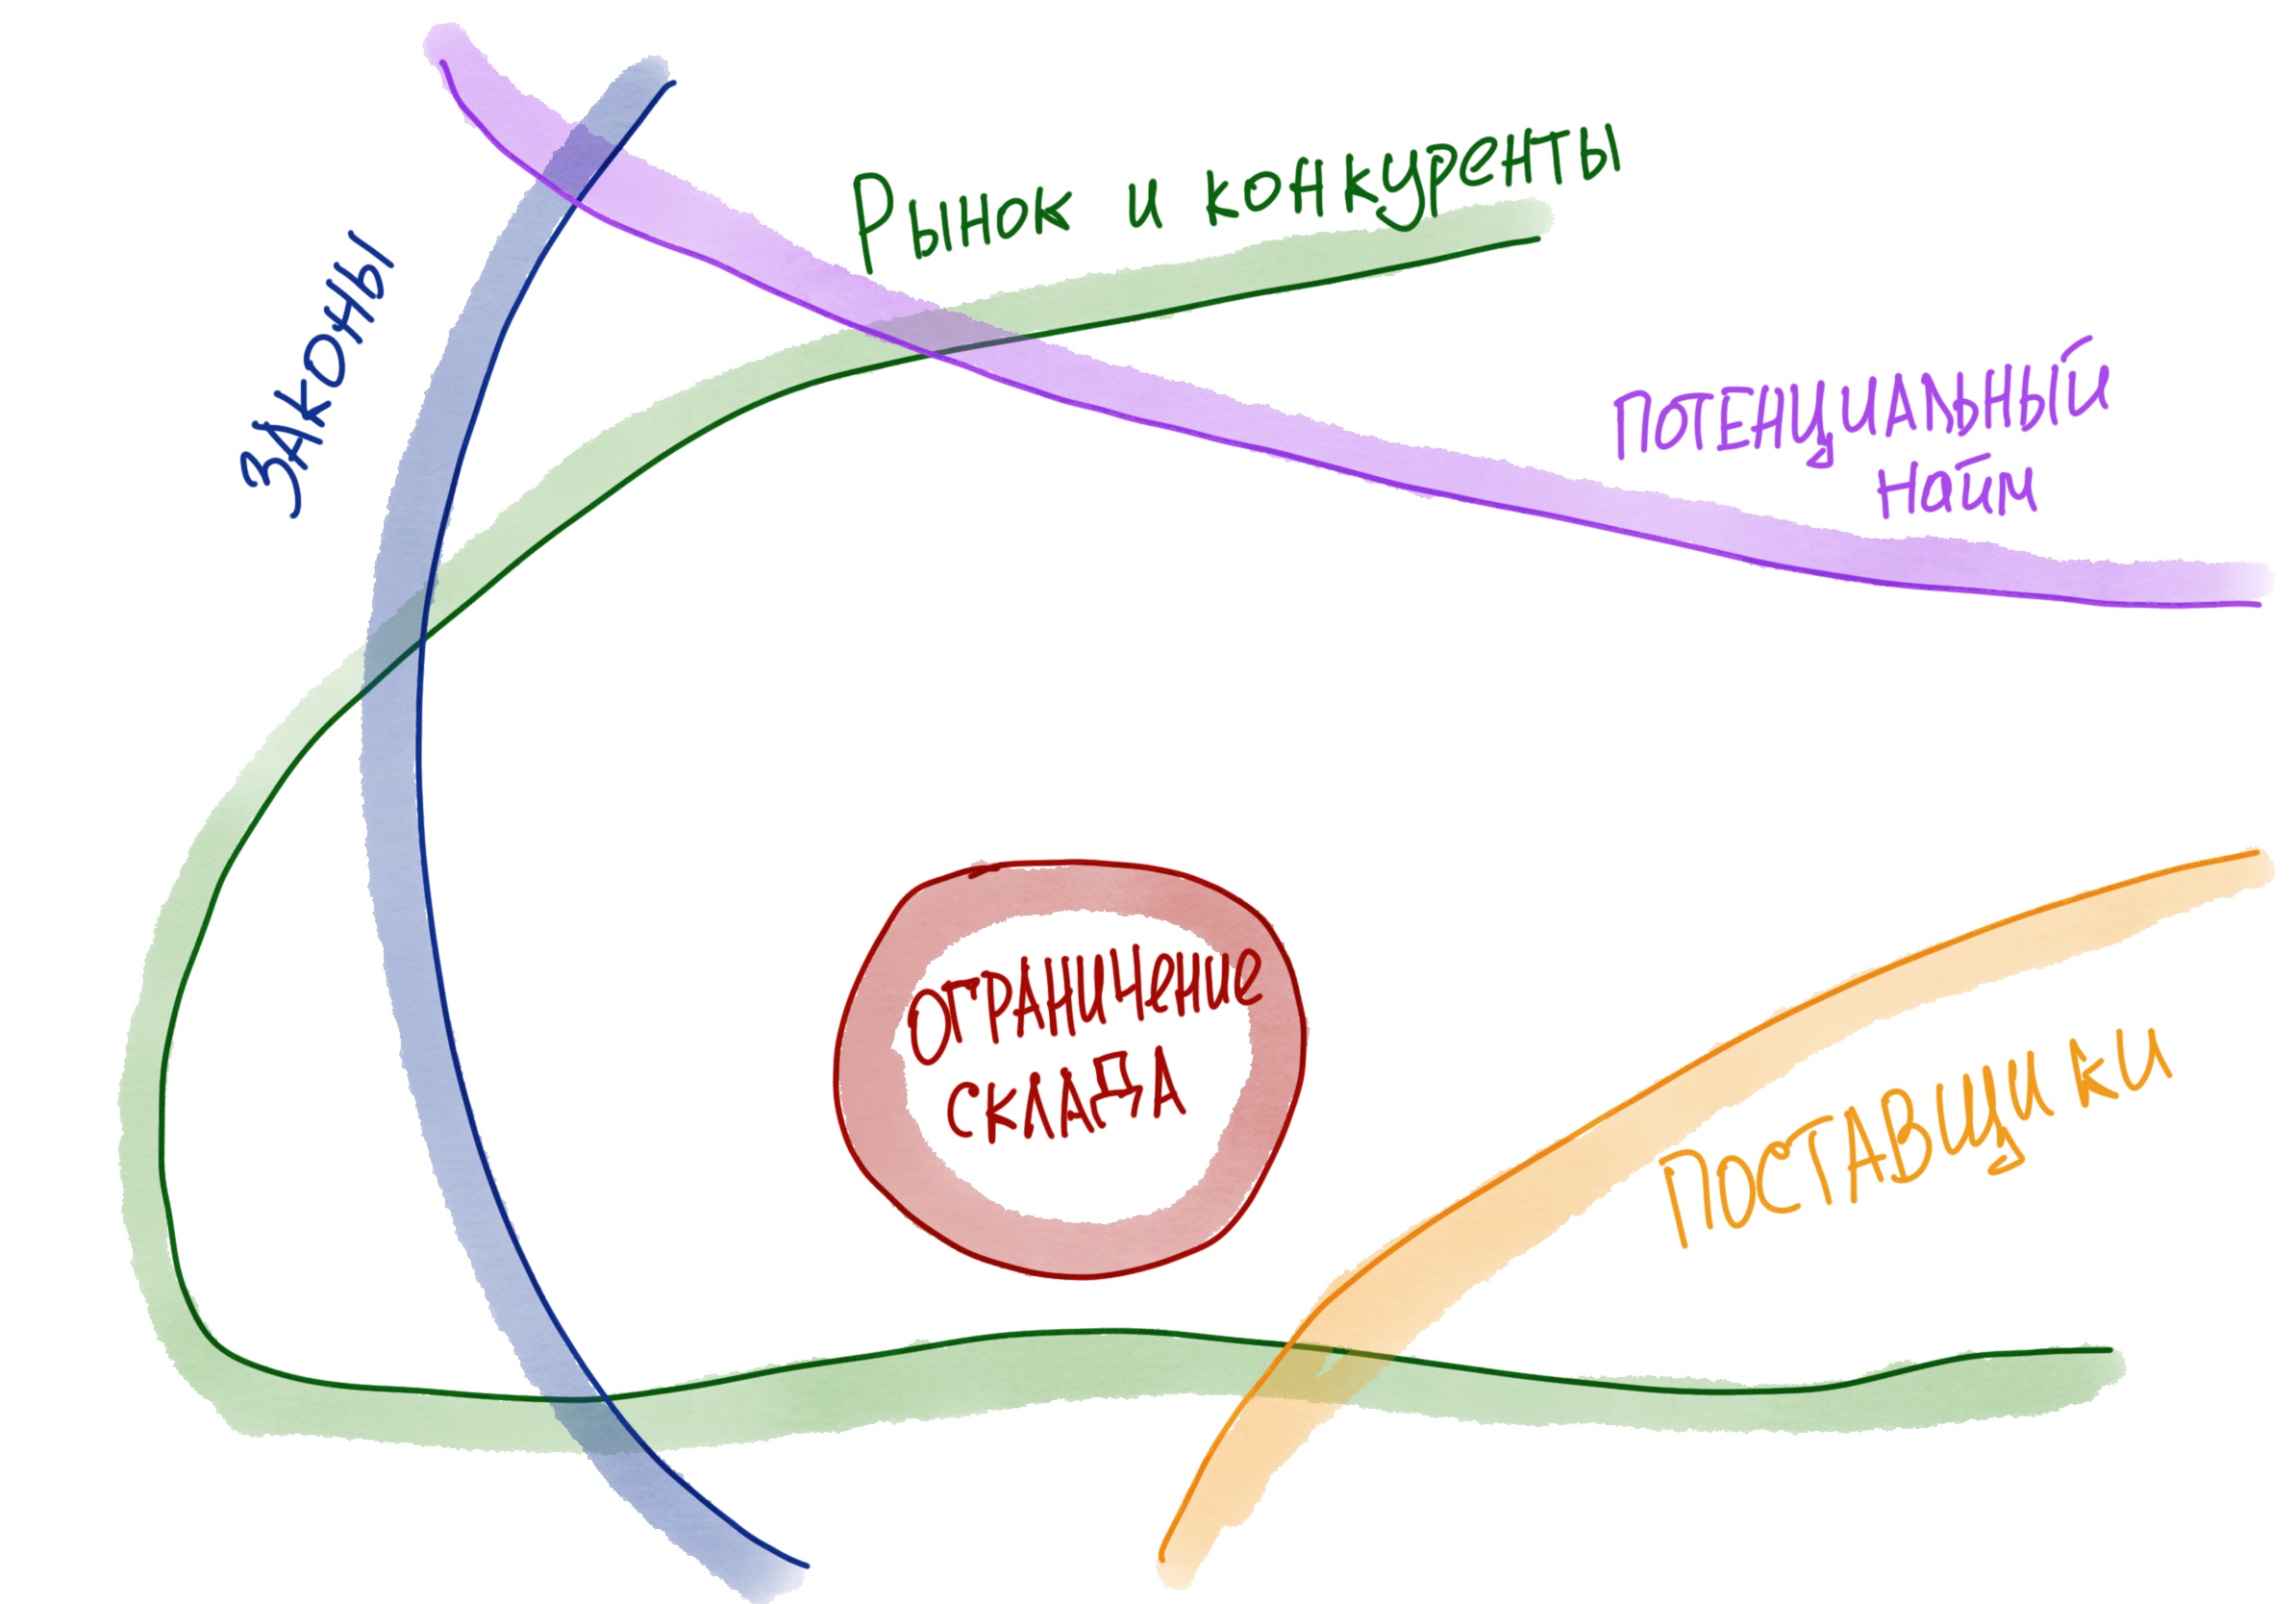 Рынок и конкуренты
ЗАКОНЫ
ПОТЕНЦИАЛЬНЫЙ
найм
ОГРАНИЧЕНИЕ
СКЛАДА
ПОСТАВЩИКИ